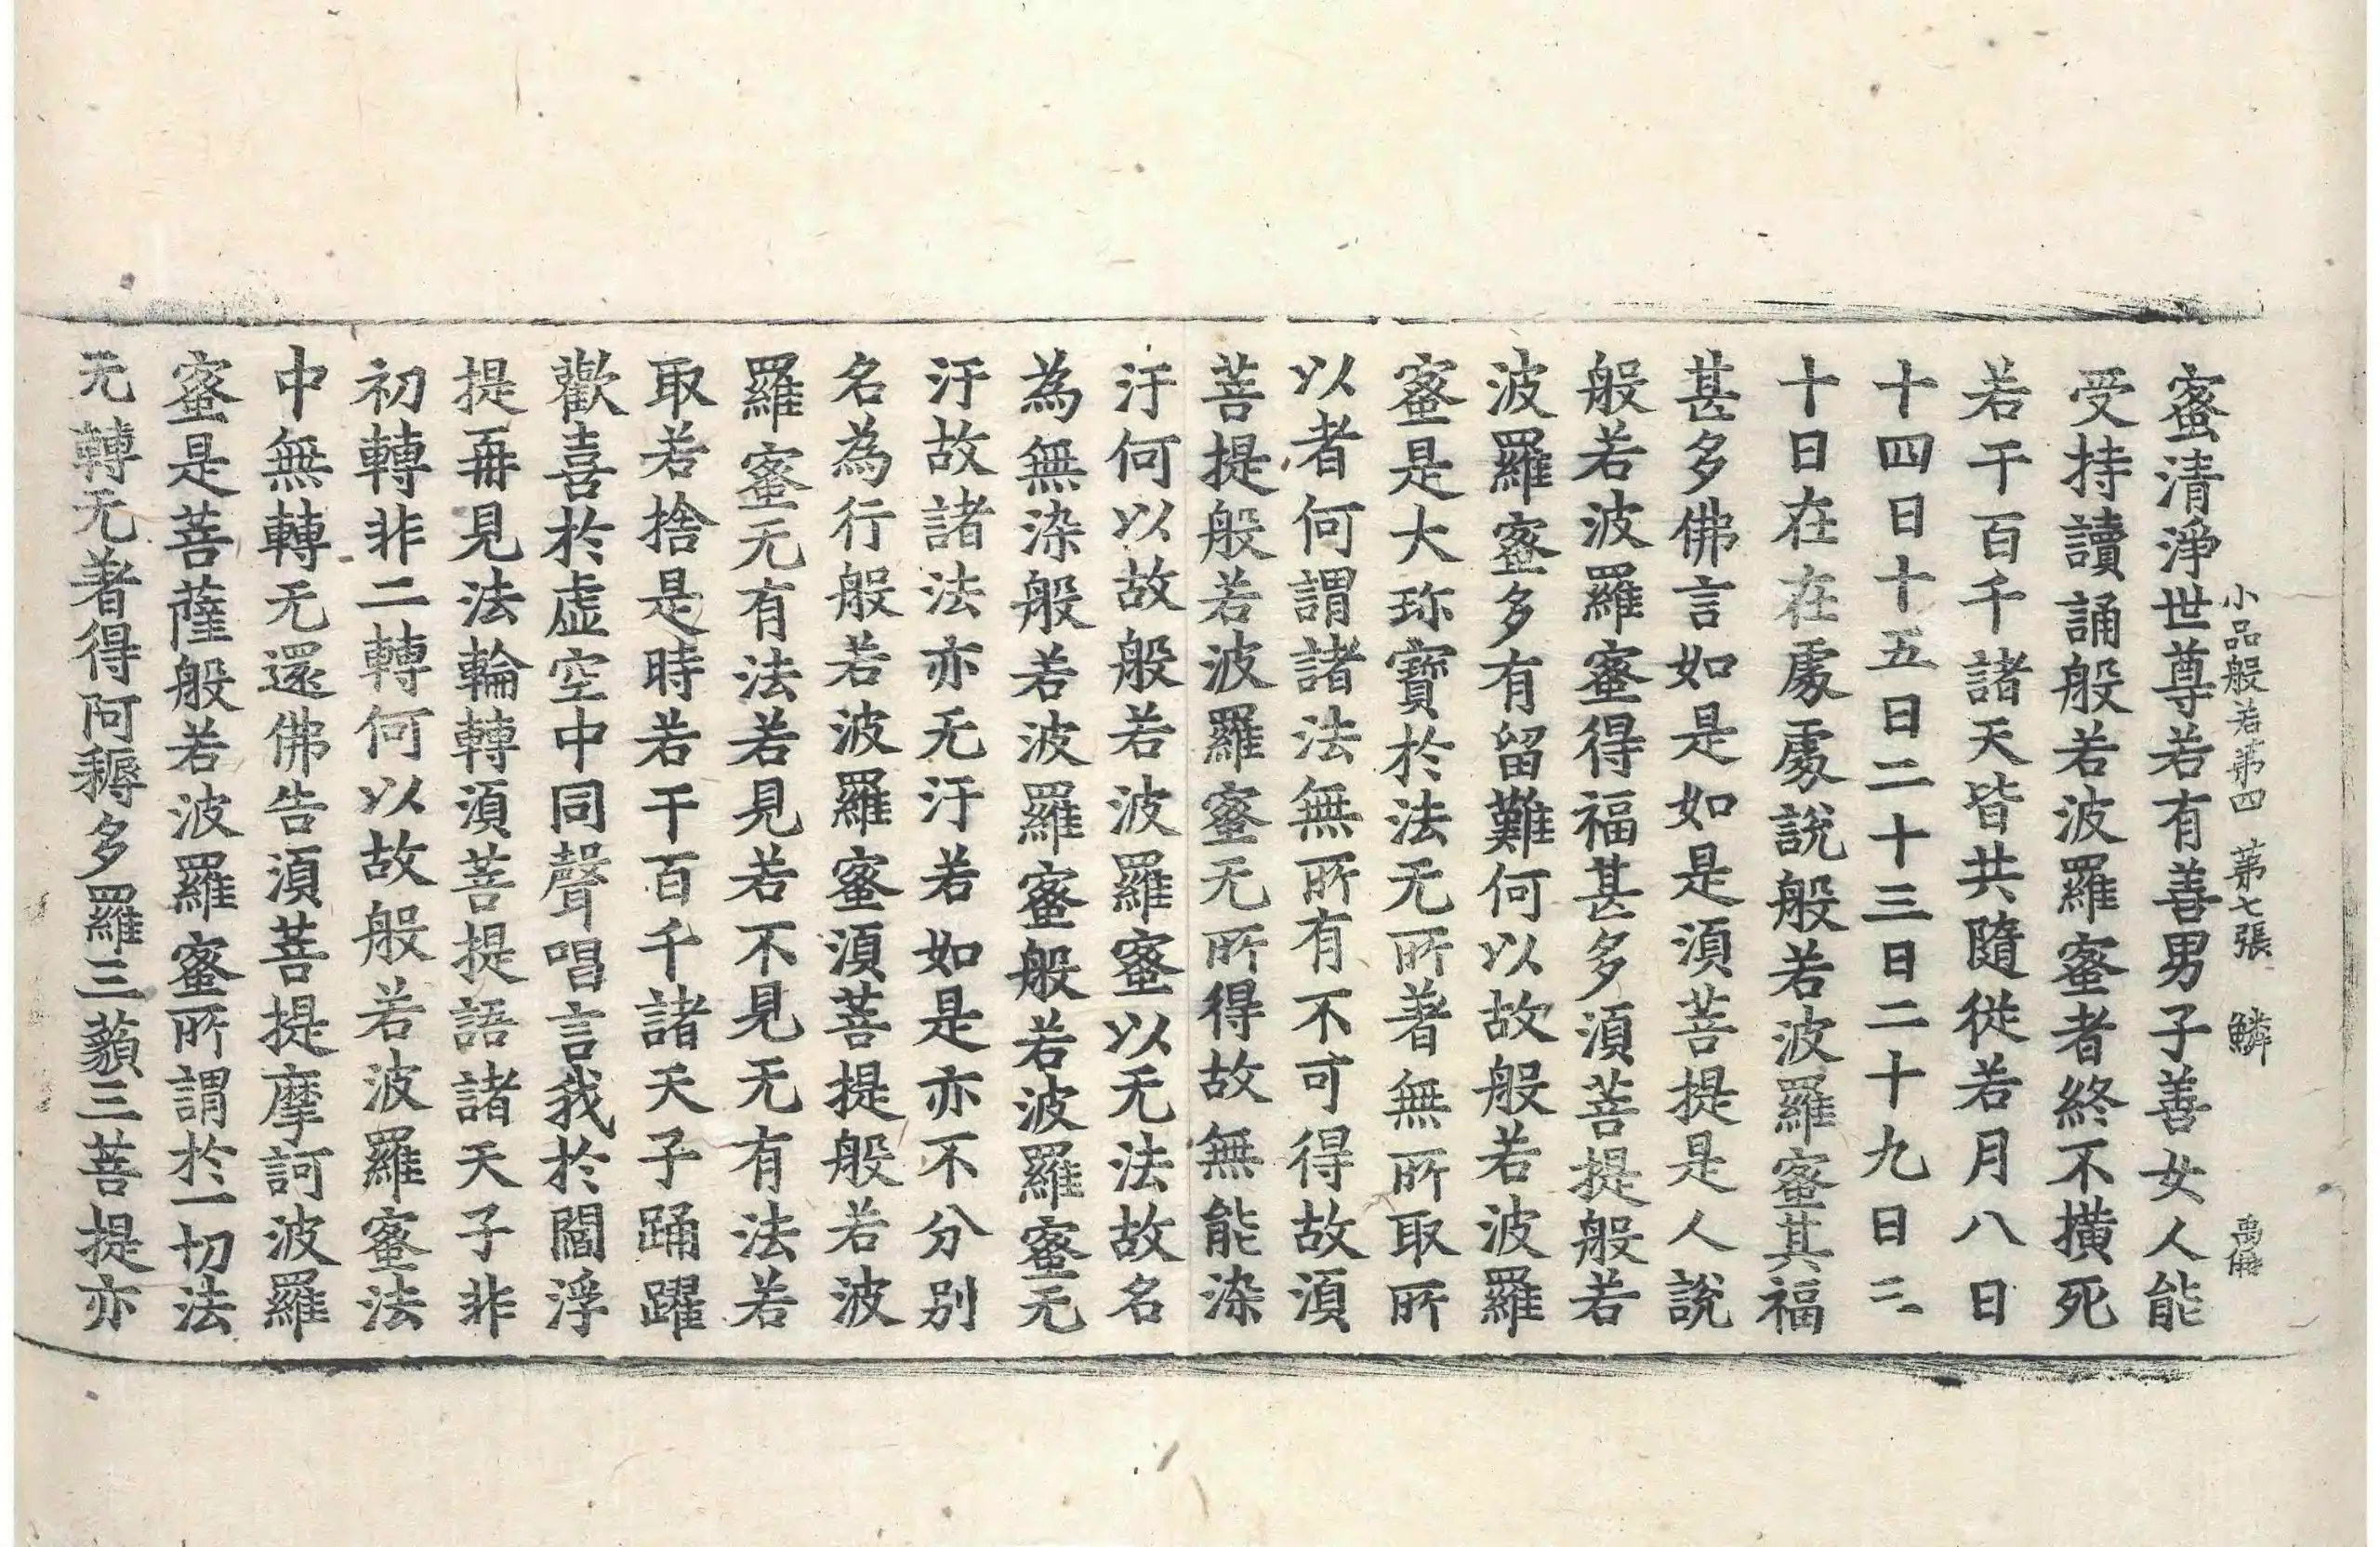 小品般若第四 第七張 鱗
蜜清淨世尊若有善男子善女人能
受持讀誦般若波羅蜜者終不橫死
若干百千諸天皆共隨從若月八日
十四日十五日二十三日二十九日三
十日在在處處說般若波羅蜜其福
甚多佛言如是如是須菩提是人說
般若波羅蜜得福甚多須菩提般若
波羅蜜多有留難何以故般若波羅
蜜是大珎寶於法无所著無所取所
以者何謂諸法無所有不可得故須
菩提般若波羅蜜无所得故無能染
汙何以故般若波羅蜜以无法故名
為無染般若波羅蜜般若波羅蜜无
汙故諸法亦无汙若如是亦不分別
名為行般若波羅蜜須菩提般若波
羅蜜无有法若見若不見无有法若
取若捨是時若干百千諸天子踊躍
歡喜於虛空中同聲唱言我於閻浮
提再見法輪轉須菩提語諸天子非
初轉非二轉何以故般若波羅蜜法
中無轉无還佛告須菩提摩訶波羅
蜜是菩薩般若波羅蜜所謂於一切法
无轉无著得阿耨多羅三藐三菩提亦